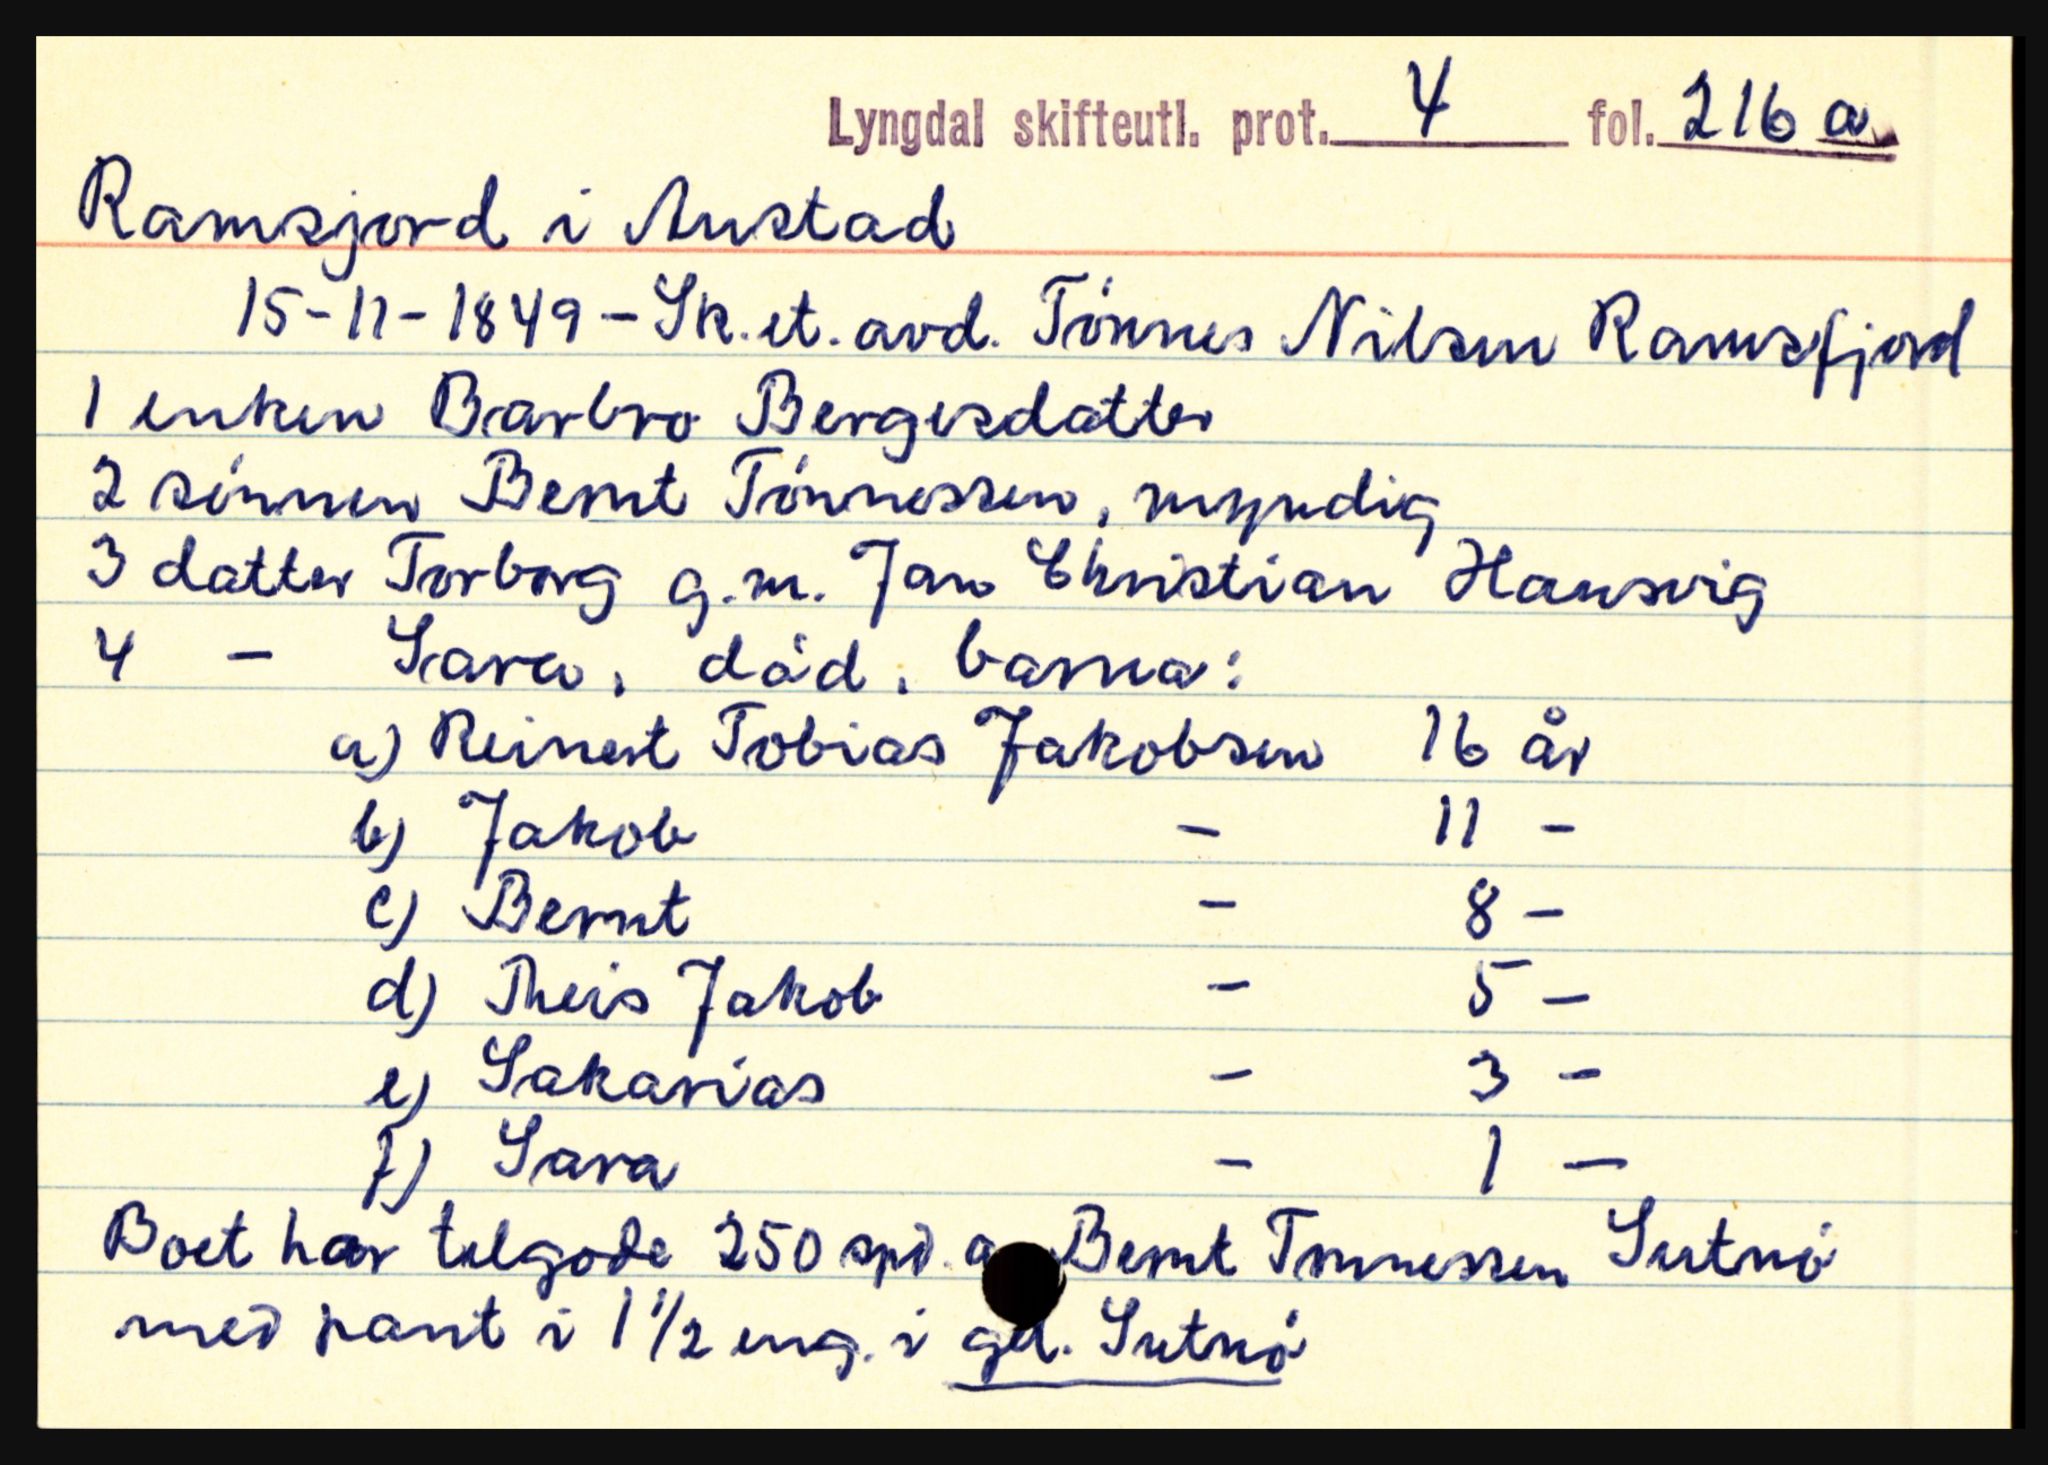 Lyngdal skifteutl. prot. 4 fol. 216 a
Ramsjord i Austad
15-11-1849 - Sk. et. avd. Tönnes Nilsen Ramsfjord
1 enken Barbro Bergesdatter
2 sönnen Bernt Tönnessen, myndig
3 datter Torborg g.m. Jan Christian Hausvig
4 - Sara, död, barna:
a) Reinert Tobias Jakobsen 16 år
b) Jakob - 11 -
c) Bernt - 8 -
d) Theis Jakob - 5 -
e) Sakarias - 3 -
f) Sara - 1 -
Boet har tilgode 250 spd. Bernt Tönnessen
med pant i 1 1/2 eng. i gd.